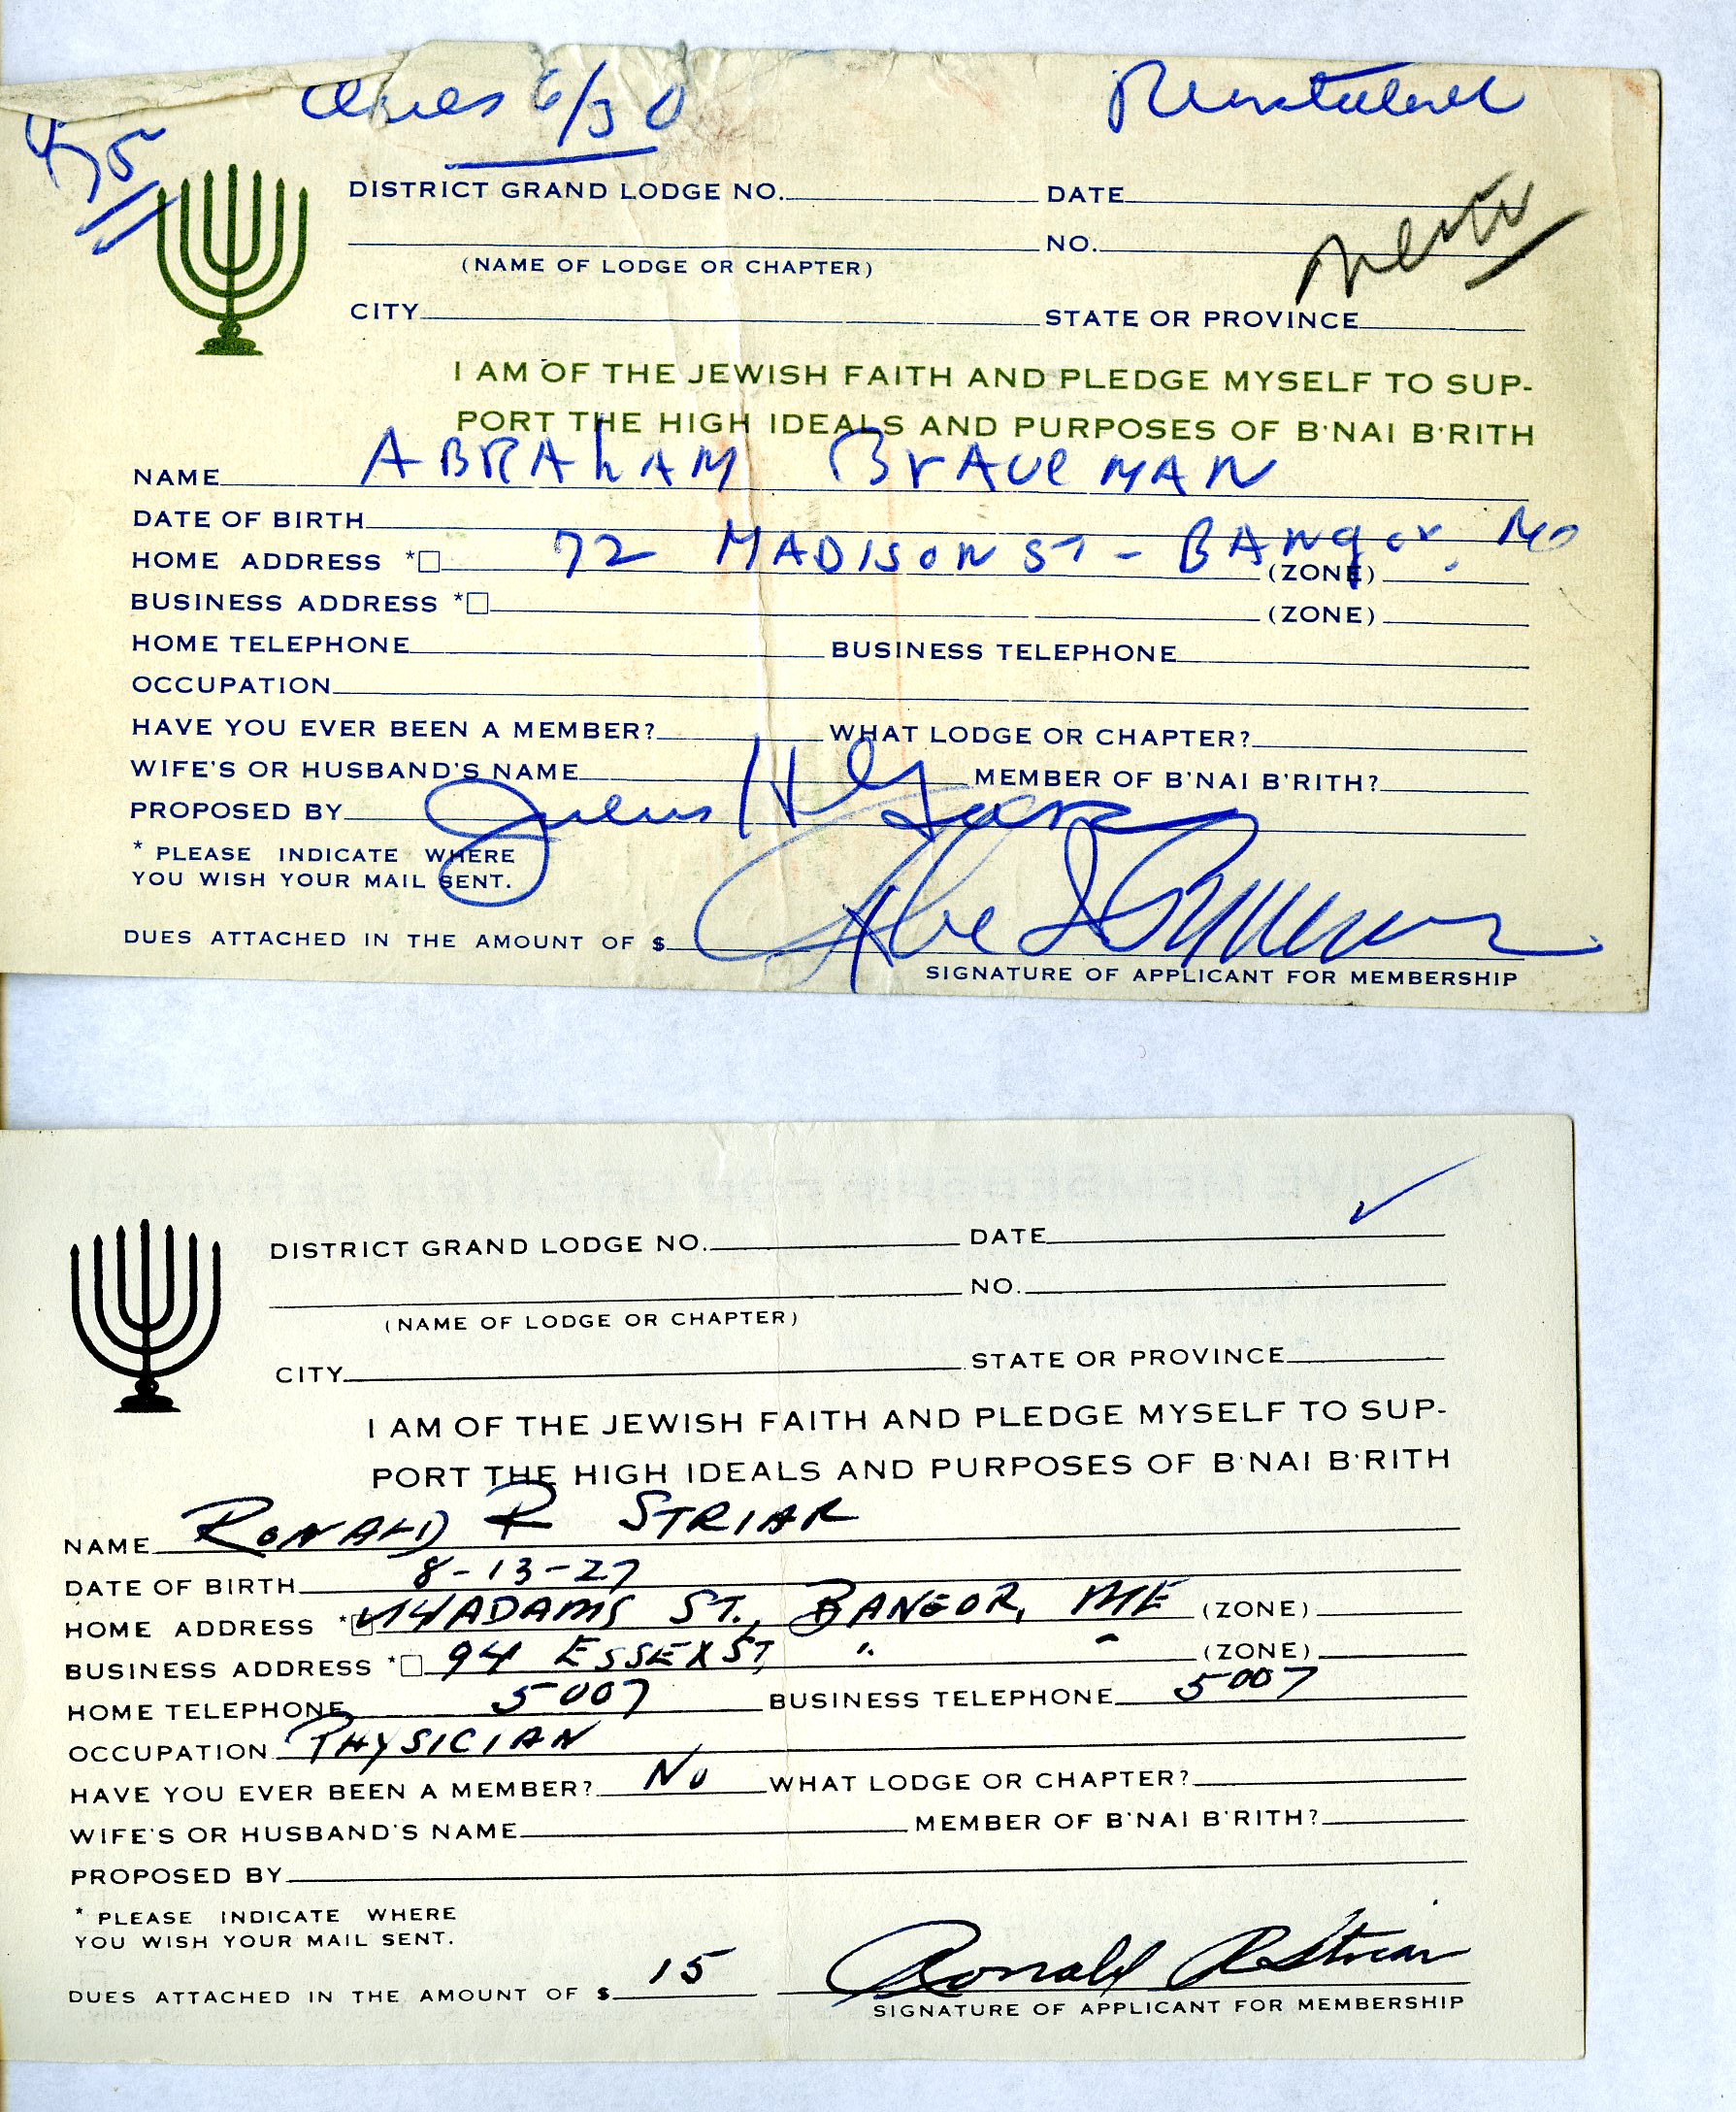 Dues 6/30 Reinstated
DISTRICT GRAND LODGE NO. DATE
NO.
(NAME OF LODGE OR CHAPTER)
CITY STATE OR PROVINCE
I AM OF THE JEWISH FAITH AND PLEDGE MYSELF TO SUP-
PORT THE HIGH IDEALS AND PURPOSES OF B'NAI B'RITH
NAME ABRAhAM BrAveMAN
DATE OF BIRTH
HOME ADDRESS *☐ 72 MADISON ST - BANgor, Me (ZONE)
BUSINESS ADDRESS *☐ (ZONE)
HOME TELEPHONE BUSINESS TELEPHONE
OCCUPATION
HAVE YOU EVER BEEN A MEMBER? WHAT LODGE OR CHAPTER?
WIFE'S OR HUSBAND'S NAME MEMBER OF B'NAI B'RITH?
PROPOSED BY H
* PLEASE INDICATE WHERE
YOU WISH YOUR MAIL SENT.
DUES ATTACHED IN THE AMOUNT OF $ Abe
SIGNATURE OF APPLICANT FOR MEMBERSHIP
DISTRICT GRAND LODGE NO. DATE ✓
NO.
(NAME OF LODGE OR CHAPTER)
CITY STATE OR PROVINCE
I AM OF THE JEWISH FAITH AND PLEDGE MYSELF TO SUP-
PORT THE HIGH IDEALS AND PURPOSES OF B'NAI B'RITH
NAME RONALD R STRIAR
DATE OF BIRTH 8-13-27
HOME ADDRESS *☑ 14 ADAMS ST., BANGOR, ME (ZONE)
BUSINESS ADDRESS *☐ 94 ESSEX ST " " (ZONE)
HOME TELEPHONE 5007 BUSINESS TELEPHONE 5007
OCCUPATION PHYSICIAN
HAVE YOU EVER BEEN A MEMBER? No WHAT LODGE OR CHAPTER?
WIFE'S OR HUSBAND'S NAME MEMBER OF B'NAI B'RITH?
PROPOSED BY
* PLEASE INDICATE WHERE
YOU WISH YOUR MAIL SENT.
DUES ATTACHED IN THE AMOUNT OF $ 15 Ronald R Striar
SIGNATURE OF APPLICANT FOR MEMBERSHIP